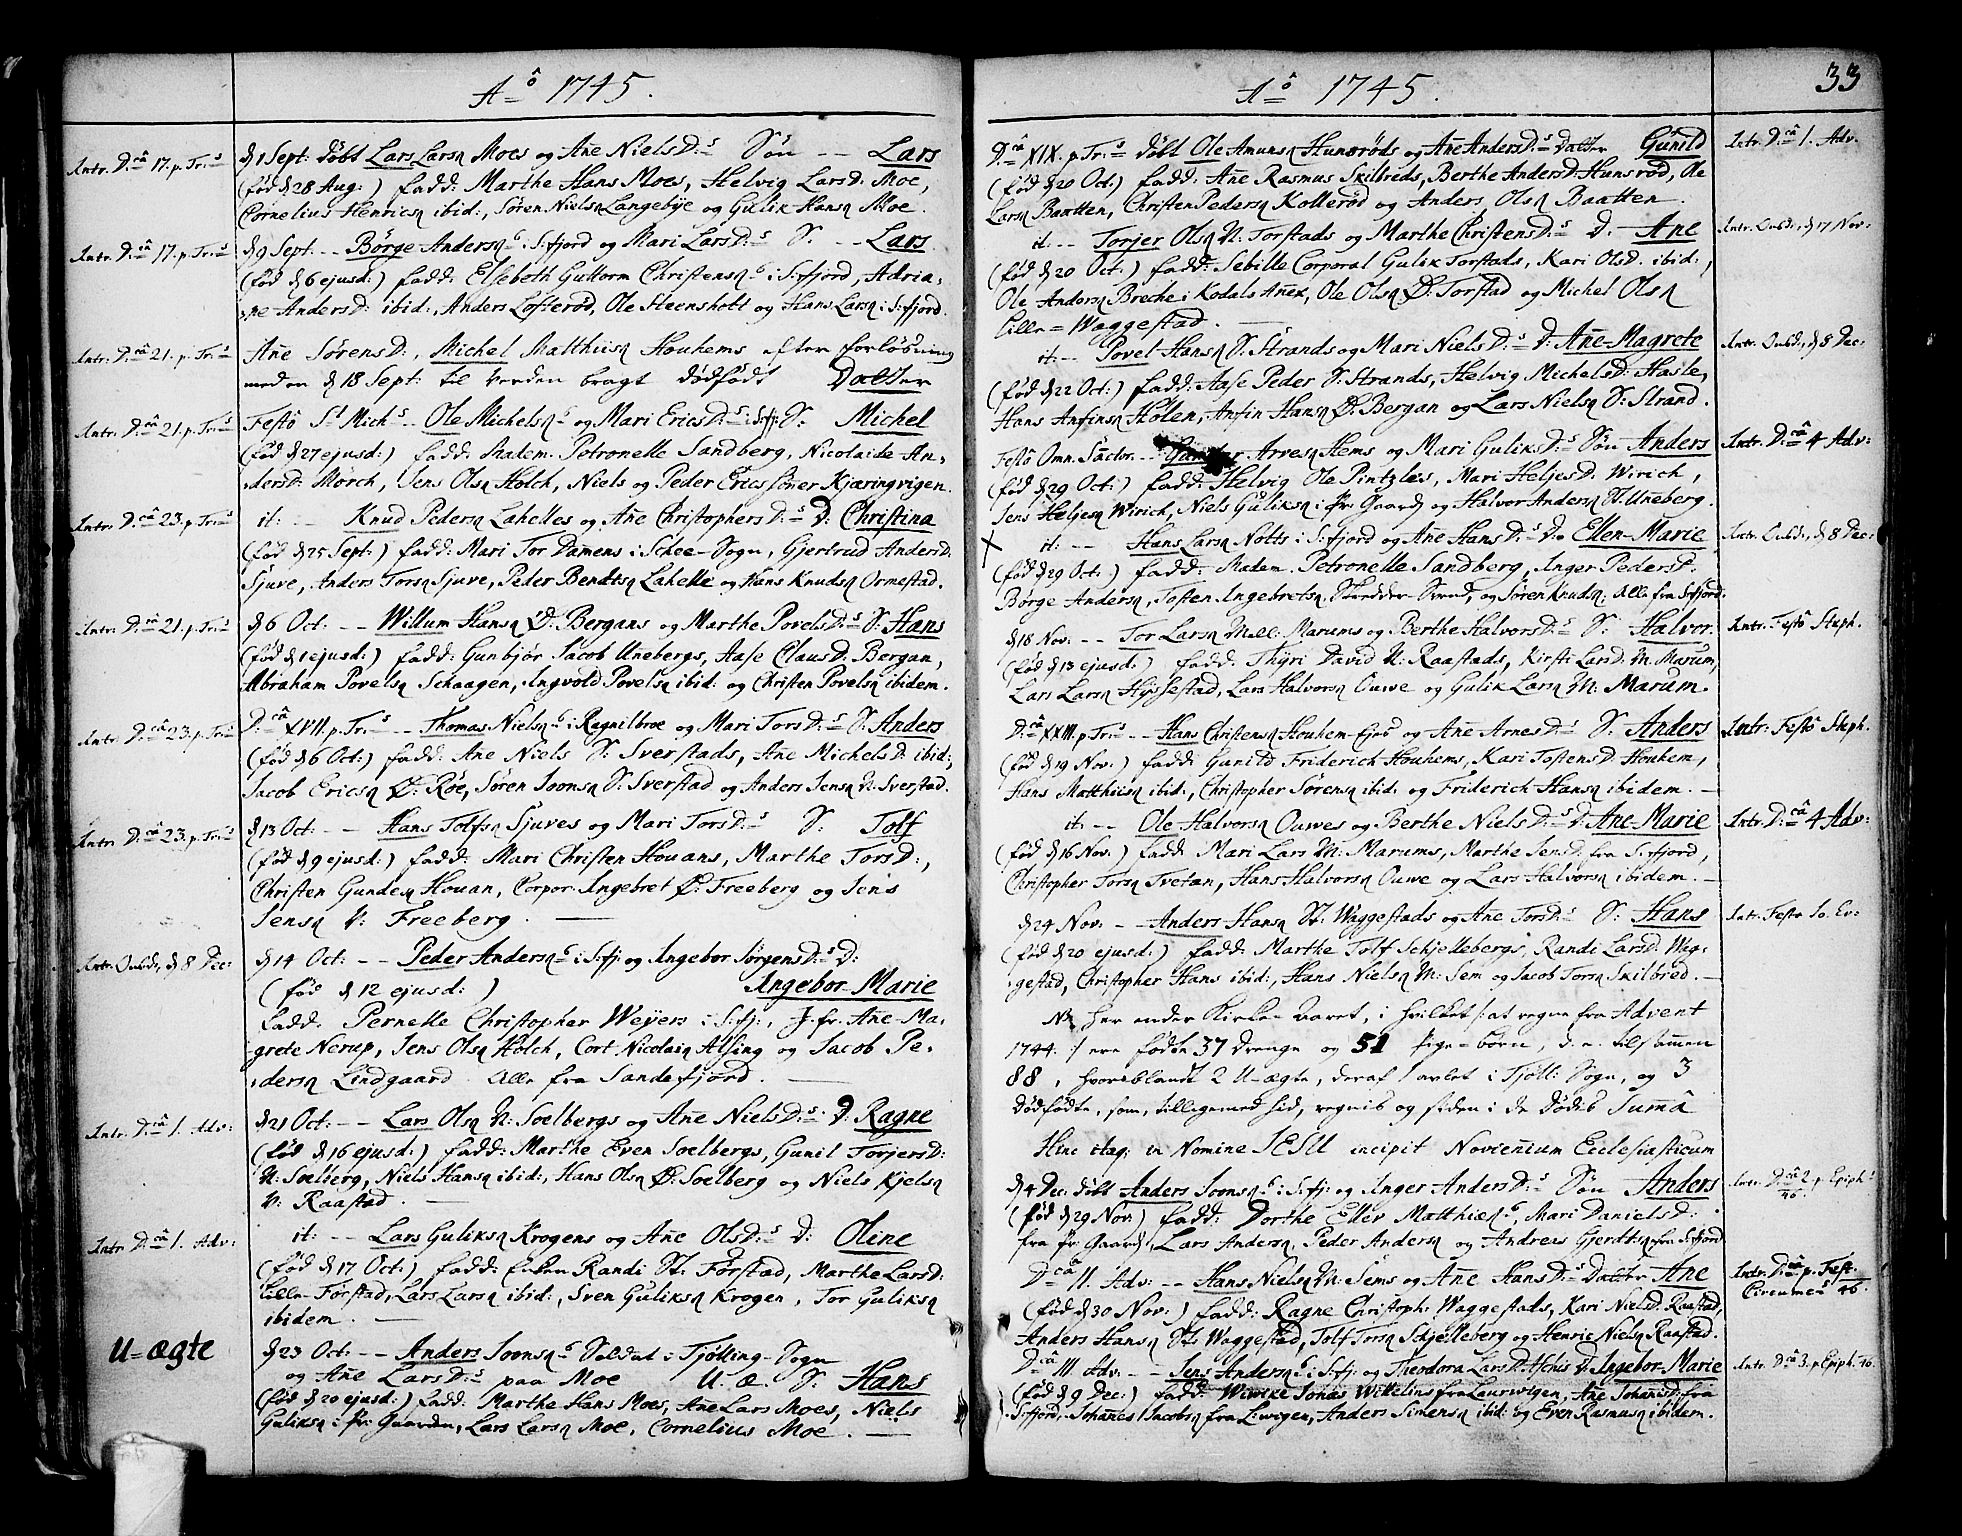 Aô 1745.
Intr. D:câ 17. p. Tr:s
d 1 Sept: døbt Lars Larsn Moes og Añe Niels D:s Søn -- Lars
(fød d 28 Aug:) fadd: Marthe Hans Moes, Helvig Lars D: Moe,
Cornelius Henricsn ibid:, Søren Nielsn Langebÿe og Gulik Hansn Moe.
Intr. D:câ 17. p. Tr:s
d 9 Sept. -- Børge Andersn i S:fjord og Mari Lars D:s S. -- Lars
(fød d 6 ejusd:) fadd: Elsebeth Guttorm Christensn i S:fjord, Adria-
ne Anders D: ibid:, Anders Lofterød, Ole Steensholt og Hans Larsn i S:fjord.
Intr: D:câ 21. p. Tr:s
Añe Sørens D:, Michel Matthiisn Houkems efter forløsning
med en d 18 Sept: til Verden bragt dødfødt Datter
Intr. D:câ 21. p. Tr:s
Festô St Mich:s -- Ole Michelsn og Mari Erics D:s i S:fj: S. Michel
(fød d 27 ejusd:) fadd: Madem. Petronelle Sandberg, Nicolaide An-
ders D: Mørch, Jens Olsn Holch, Niels og Peder Erics Søner Kjæringvigen.
Intr. D:câ 23. p. Tr:s
it: -- Knud Pedersn Lahelles og Añe Christophers D:s D: Christina
(fød d 25 Sept:) fadd: Mari Tor Damens i Schee-Sogn, Gjertrud Anders D:
Sjuve, Anders Torsn Sjuve, Peder Bendtsn Lahelle og Hans Knudsn Ormestad.
Intr: D:câ 21. p. Tr:s
d 6 Oct: -- Willum Hansn Ø: Bergans og Marthe Povels D:s S. Hans
(fød d 1 ejusd:) fadd: Gunbjør Jacob Unebergs, Aase Claus D: Bergan,
Abraham Povelsn Schaagen, Ingvold Povelsn ibid: og Christen Povelsn ibidem.
Intr: D:câ 23. p. Tr:s
D:câ XVII. p. Tr:s -- Thomas Nielsn i Ragnilbroe og Mari Tors D:s S. Anders
(fød d 6 Oct:) fadd: Ane Niels S: Sverstads, Ane Michels D: ibid:,
Jacob Ericsn Ø: Røe, Søren Joonsn S: Sverstad og Anders Jensn N: Sverstad.
Intr: D:câ 23. p. Tr:s
d 13 Oct: -- Hans Tolfsn Sjuves og Mari Tors D:s S. Tolf
(fød d 9 ejusd:) fadd: Mari Christen Houans, Marthe Tors D:,
Christen Gundesn Houan, Corpor: Ingebret Ø: Freeberg og Jens
Jensn V: Freeberg.
Intr. Onsd:, d 8 Dec:
d 14 Oct: -- Peder Andersn i S:fj: og Ingebor Jørgens D:s D:
(fød d 12 ejusd:) Ingebor-Marie
Fadd: Pernelle Christopher Weÿers i S:fj:, J-fr. Añe-Ma-
grete Nerup, Jens Olsn Holch, Cort Nicolaisn Alsing og Jacob Pe-
dersn Lindgaard. Alle fra Sandefjord.
Intr. D:câ 1. Adv:
d 21 Oct: -- Lars Olsn N: Soelbergs og Añe Niels D:s D: Ragne
(fød d 16 ejusd:) fadd: Marthe Even Soelbergs, Gunil Torjers D:
N: Soelberg, Niels Hansn ibid:, Hans Olsn Ø: Soelberg og Niels Kjelsn
V: Raastad.
Intr. D:câ 1. Adv:
it: -- Lars Guliksn Krogens og Añe Ols D:s D: Oline
(fød d 17 Oct:) fadd: Enken Randi St: Førstad, Marthe Lars D:
Lille-Førstad, Lars Larsn ibid:, Sven Guliksn Krogen, Tor Guliksn
ibidem.
U-ægte
d 23 Oct: -- Anders Joonsn Soldat i Tjølling-Sogn
og Añe Lars D:s paa Moe U. æ. S: Hans
(fød d 20 ejusd:) Fadd: Marthe Hans Moes, Añe Lars Moes, Niels
Guliksn i Pr: Gaarden, Lars Larsn Moe, Cornelius Moe.
Aô 1745.
33
D:câ XIX. p. Tr:s døbt Ole Amunsn Hunsrøds og Añe Anders D:s Datter Gunild
Intr. D:câ 1. Adv.
(fød d 20 Oct:) fadd: Añe Rasmus Skilbreds, Berthe Anders D: Hunsrød, Ole
Larsn Baatten, Christen Pedersn Kollerød og Anders Olsn Baatten.
it. -- Torjer Olsn N: Torstads og Marthe Christens D:s D. Ane
Intr. Onsd:, d 17 Nov:
(fød d 20 Oct:) fadd: Sebille Corporal Gulik Torstads, Kari Ols D. ibid:,
Ole Andersn Breche i Kodals Añex, Ole Olsn Ø: Torstad og Michel Olsn
Lille-Waggestad.
it -- Povel Hansn S: Strands og Mari Niels D:s D: Añe-Magrete
Intr. Onsd:, d 8 Dec:
(fød d 22 Oct:) fadd: Aase Peder S: Strands, Helvig Michels D: Hasle,
Hans Anfinsn Holen, Anfin Hansn Ø: Bergan og Lars Nielsn S: Strand.
Festô Omn. Sactor. -- Arvesn Hems og Mari Guliks D:s Søn Anders
Intr. D:câ 4 Adv:
(fød d 29 Oct:) fadd: Helvig Ole Pintzles, Mari Heljes D. Wirich,
Jens Heljesn Wirich, Niels Guliksn i Pr: Gaard og Halvor Andersn N: Uneberg.
X it: -- Hans Larsn Notts i S:fjord og Añe Hans D:s D. Ellen-Marie
Intr. Onsd:, d 8 Dec:
(fød d 29 Oct:) fadd: Madem. Petronelle Sandberg, Inger Peders D.
Børge Andersn, Tosten Ingebretsn Skredder-Svend, og Søren Knudsn. Alle fra S:fjord.
d 18 Nov: -- Tor Larsn Mell: Marums og Berthe Halvors D:s S: Halvor
Intr. Festô Steph.
(fød d 13 ejusd:) fadd: Thÿri David N: Raastads, Kirsti Lars D: M: Marum,
Lars Larsn Hÿssestad, Lars Halvorsn Ouwe og Gulik Larsn M: Marum.
D:câ XXIII. p. Tr:s -- Hans Christensn Houkem-Ejes og Añe Arnes D:s S: Anders
Intr. Festô Steph.
(fød d 19 Nov:) fadd: Gunild Friderich Houkems, Kari Tostens D: Houkem,
Hans Matthiisn ibid:, Christopher Sørensn ibid: og Friderich Hansn ibidem. -
it: -- Ole Halvorsn Ouwes og Berthe Niels D:s D: Ane-Marie
Intr. D:câ 4 Adv:
(fød d 16 Nov:) fadd: Mari Lars M: Marums, Marthe Jens D: fra S:fjord,
Christopher Torsn Tvetan, Hans Halvorsn Ouwe og Lars Halvorsn ibidem. -
d 24 Nov: -- Anders Hansn St: Waggestads og Añe Tors D:s S: Hans
Intr. Festo Jo. Ev:
(fød d 20 ejusd:) fadd: Marthe Tolf Schjellebergs, Randi Lars D: Wag-
gestad, Christopher Hans ibid:, Hans Nielsn M: Sem og Jacob Torsn Skilbred. -
NB her ender Kirke-Aaret, i hvilket /: at regne fra Advent
1744. :/ ere fødte 37 Drenge og 51 Pige-børn, d. e. tilsammen
88, hvoriblandt 2 U-ægte, deraf 1 avlet i Tjøll: Sogn, og 3
dødfødte, som, tillige med hid, regnis og siden i de Dødis Sumâ
Hinc itaq: in Nomine JESU incipit Novieñium Ecclesiasticum
d 4 Dec: døbt Anders Joonsn i S:fj: og Inger Anders D:s Søn Anders
Intr. D:câ 2. p. Epiph: 46.
(fød d 29 Nov:) fadd: Dorthe Eller Matthiæ, Mari Daniels D:
fra Pr: Gaard, Lars Andersn, Peder Andersn og Andreas Gjerdtsn fra S:fjord
D:câ II. Adv: -- Hans Nielsn M: Sems og Añe Hans D:s Datter Ane
Intr. D:câ p. Fest. Circumcis 46.
(fød d 30 Nov:) fadd: Ragne Christoph: Waggestads, Kari Niels D. Raastad,
Anders Hansn St: Waggestad, Tolf Torsn Schjelleberg og Henric Nielsn Raastad.
D:câ III Adv. -- Jens Andersn i S:fj: og Theodora Lars D: D: Ingebor-Marie
Intr. D:câ 3. p. Epiph: 46.
(fød d 9 Dec:) fadd: Wiwike Jonas Wilkelins fra Laurwigen, Ane Johans D: fra
S:fjord, Johannes Jacobsn fra L:wigen, Anders Simensn ibid: og Even Rasmusn ibidem.